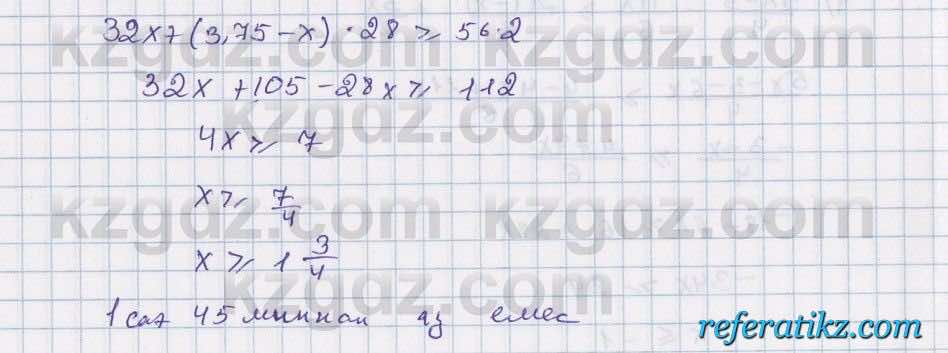 32x+(3,75-x)·28 ≥ 56·2
32x+105-28x ≥ 112
4x ≥ 7
x ≥ 7/4
x ≥ 1 3/4
1 сағ 45 миннан аз емес
kzgdz.com kzgdz.com
kzgdz.com kzgdz.com
kzgdz.com kzgdz.com
kzgdz.com
referatikz.com